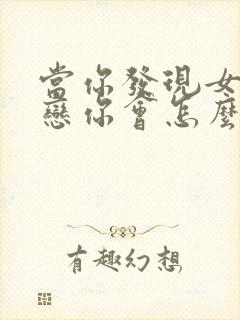 當你發現女
戀你會怎麼
有趣幻想